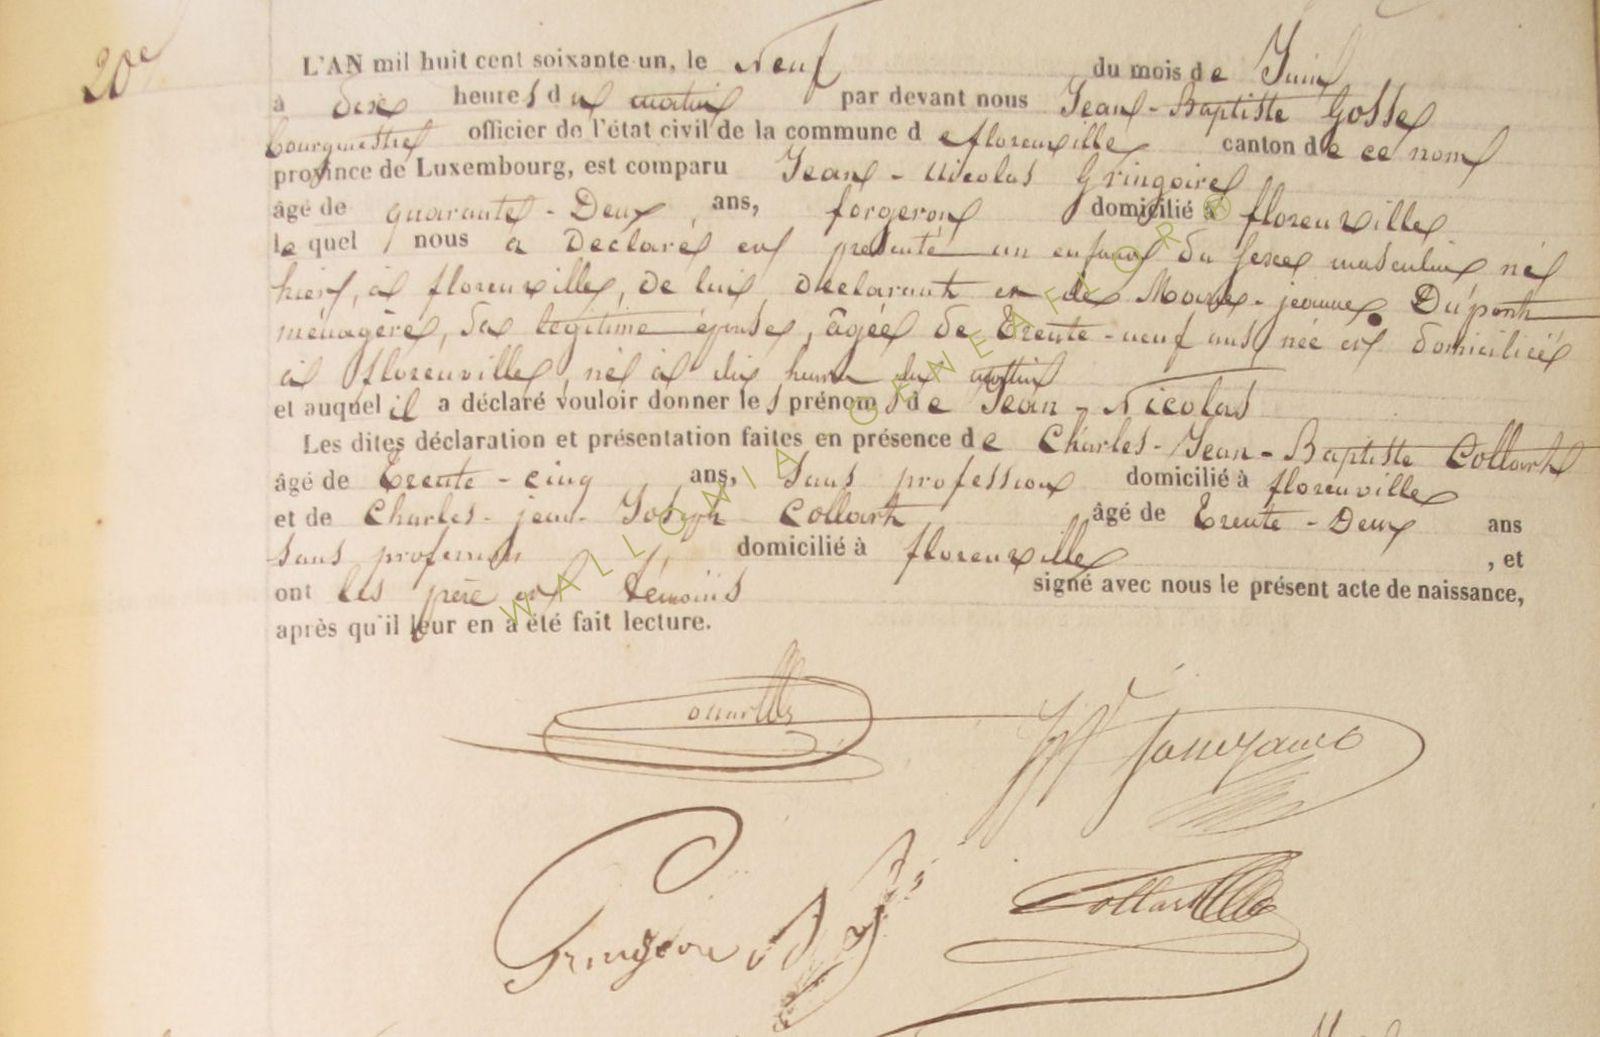 20e
L'AN mil huit cent soixante un, le Neuf du mois de Juin
à dix heures du matin par devant nous Jean-Baptiste Gosse
bourgmestre officier de l'état civil de la commune de florenville canton de ce nom
province de Luxembourg, est comparu Jean-Nicolas Gringoire
âgé de quarante-Deux ans, forgeron domicilié à florenville
lequel nous a Déclaré et présenté un enfant du sexe masculin né
hier, à florenville, de lui déclarant et de Marie-jeanne Dupont
ménagère, sa légitime épouse, âgée de Trente-neuf ans née et domiciliée
à florenville, né à dix heures du matin
et auquel il a déclaré vouloir donner les prénoms de Jean-Nicolas
Les dites déclaration et présentation faites en présence de Charles-Jean-Baptiste Collart
âgé de Trente-cinq ans, Sans profession domicilié à florenville
et de Charles-jean-Joseph Collart âgé de Trente-Deux ans
sans profession, domicilié à florenville, et
ont les père et témoins signé avec nous le présent acte de naissance,
après qu'il leur en a été fait lecture.
Gringoire
Collart
WALLONIA GENEATHEQUE